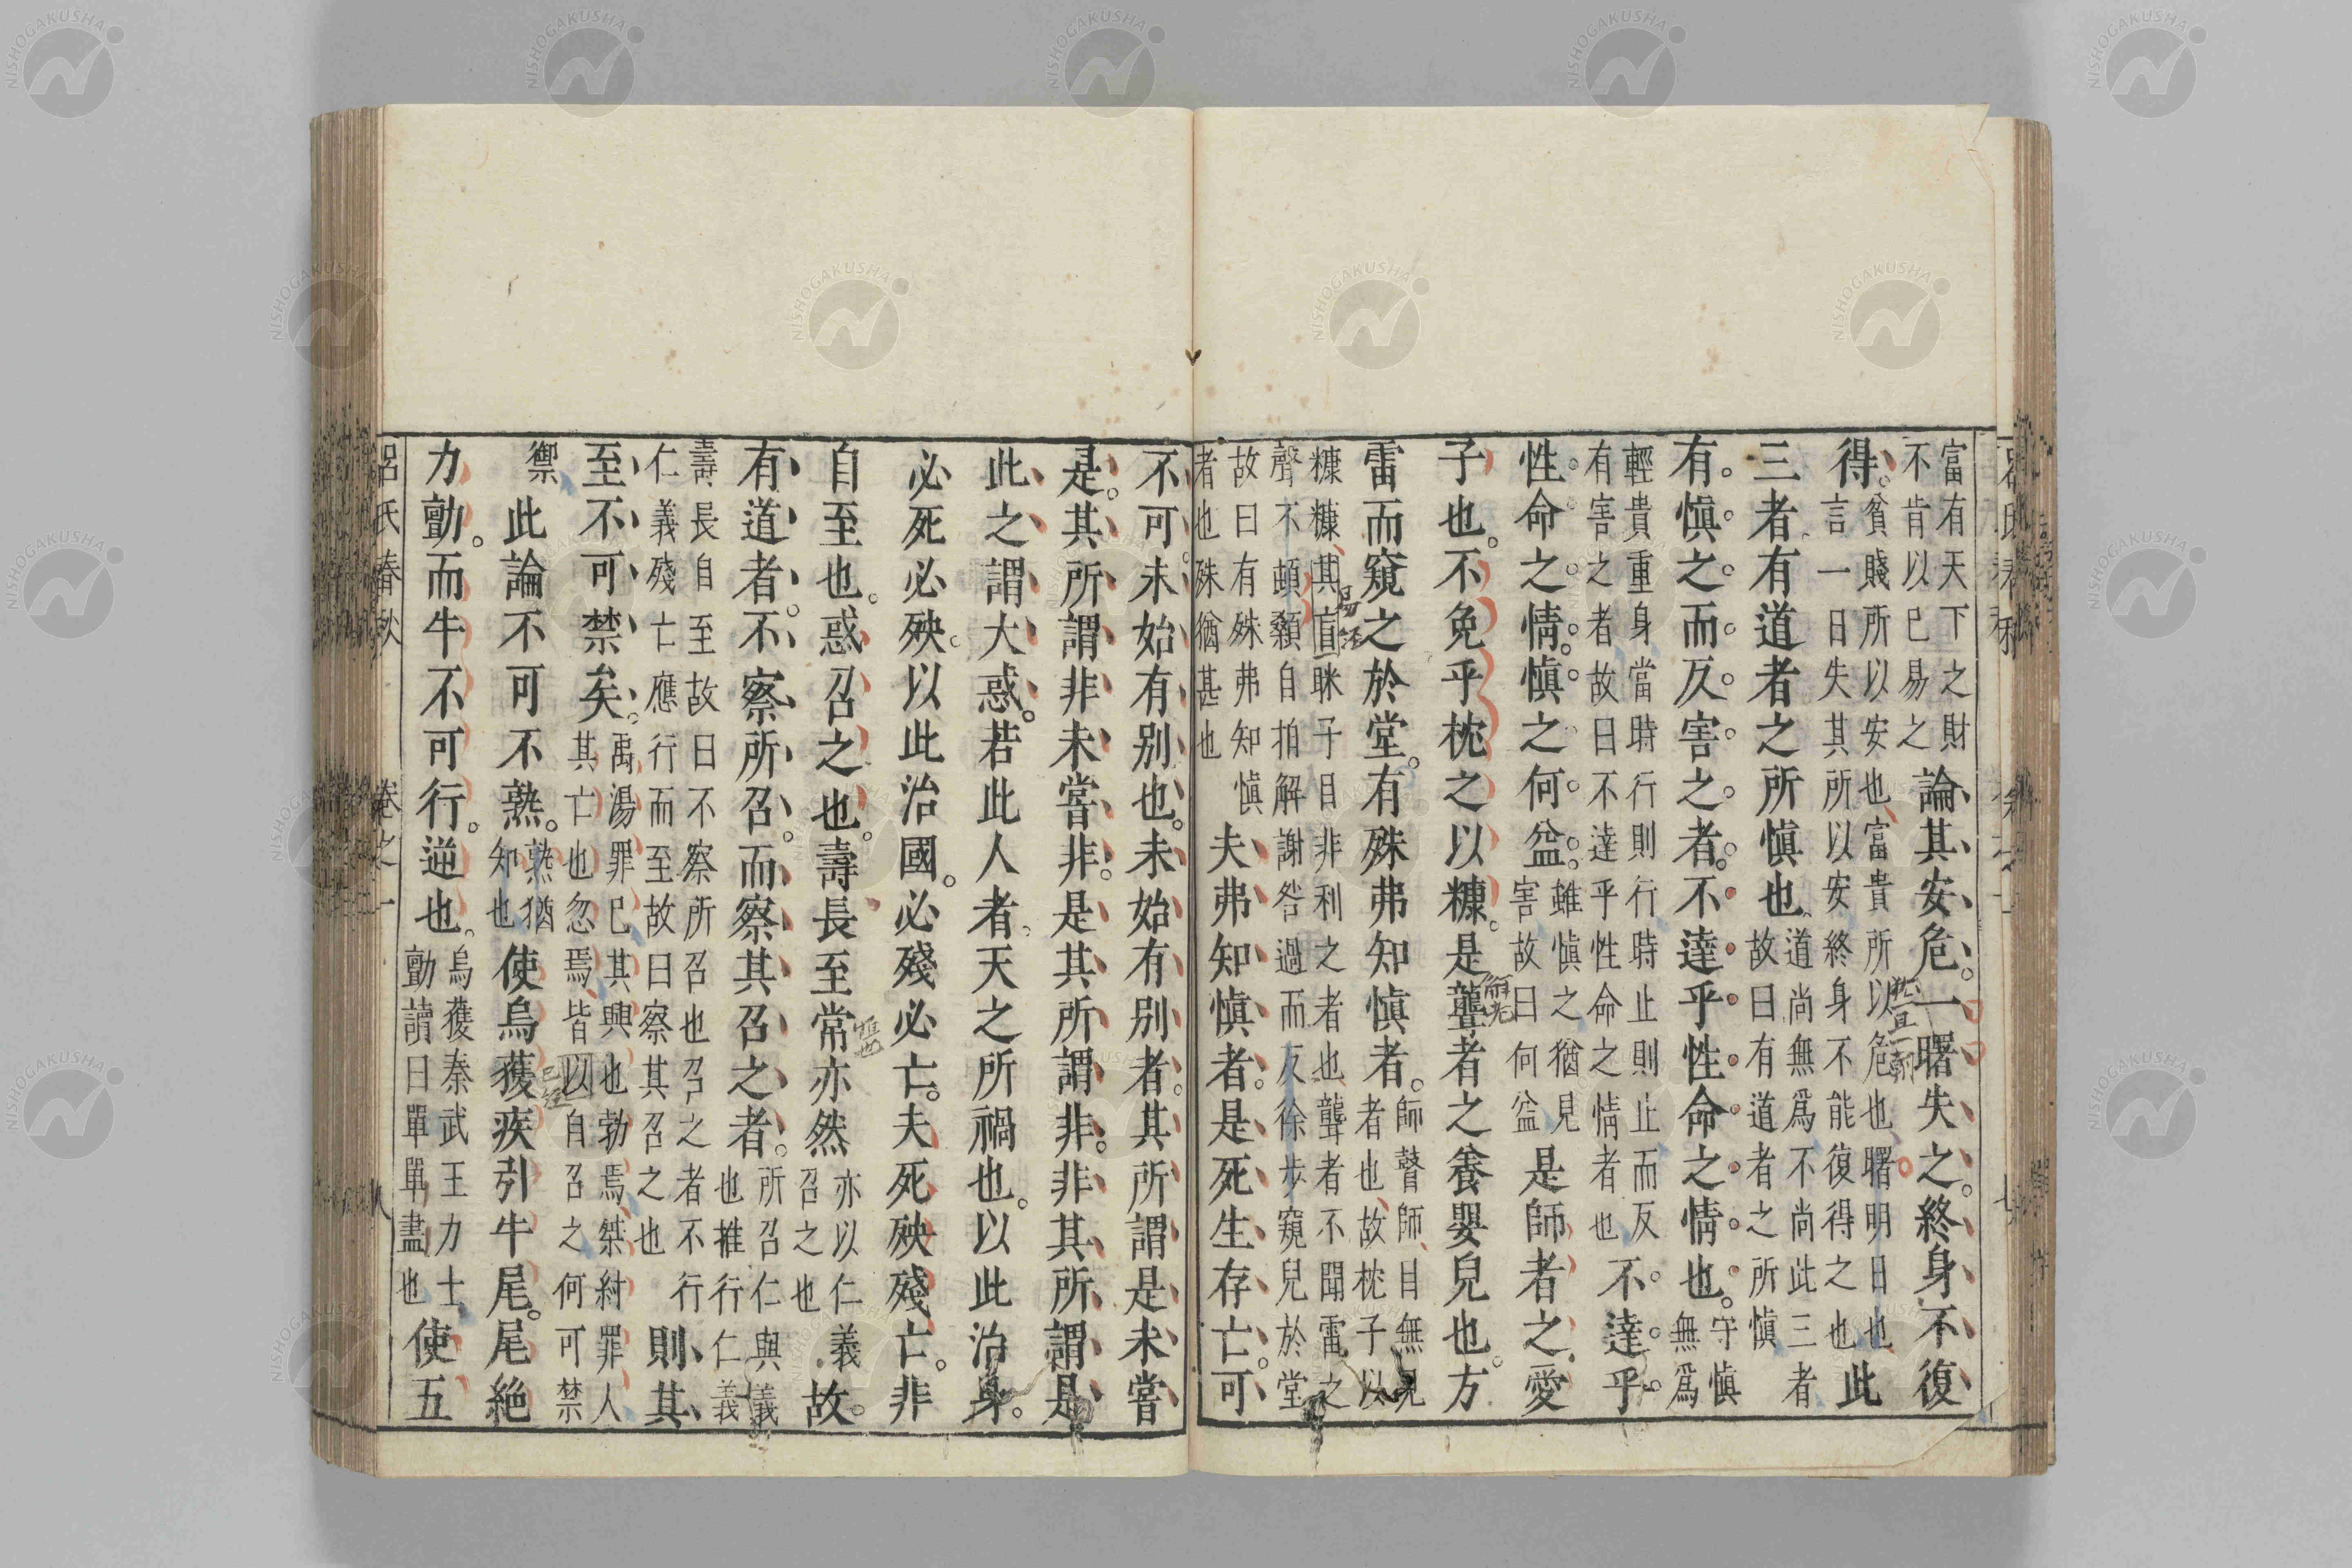 富有天下之財
不肯以已易之
論其安危。一曙失之。終身不復
得。
貧賤所以安也富貴所以危也曙明日也
言一日失其所以安終身不能復得之也
此
三者有道者之所慎也
道尚無爲不尚此三者
故曰有道者之所慎
有。慎之而反害之者。不達乎性命之情也。
守慎
無爲
輕貴重身當時行則行時止則止而反
有害之者故曰不達乎性命之情者也
不達乎
性命之情。慎之何益。
雖慎之猶見
害故曰何益
是師者之愛
子也。不免乎枕之以糠。是聾者之養嬰兒也。方
雷而窺之於堂。有殊弗知慎者。
師瞽師目無見
者也故枕子以
糠糠其盲眯子目非利之者也聾者不聞雷之
聲不頓顙自拍解謝咎過而反徐步窺兒於堂
故曰有殊弗知慎
者也殊猶甚也
夫弗知慎者。是死生存亡。可
不可。未始有别也。未始有别者。其所謂是未嘗
是。其所謂非未嘗非。是其所謂非。非其所謂是
此之謂大惑。若此人者。天之所禍也。以此治身。
必死必殃。以此治國。必殘必亡。夫死殃殘亡。非
自至也。惑召之也。壽長至常亦然
亦以仁義
召之也
故
有道者。不察所召。而察其召之者。
所召仁與義
也推行仁義
壽長自至故曰不察所召也召之者不行
仁義殘亡應行而至故曰察其召之也
則其
至不可禁矣。
禹湯罪已其興也勃焉桀紂罪人
其亡也忽焉皆以自召之何可禁
禦
此論不可不熟。
熟猶
知也
使烏獲疾引牛尾。尾絶
力勯。而牛不可行。逆也。
烏獲秦武王力士
勯讀曰單單盡也
使五
呂氏春秋 卷之一 八